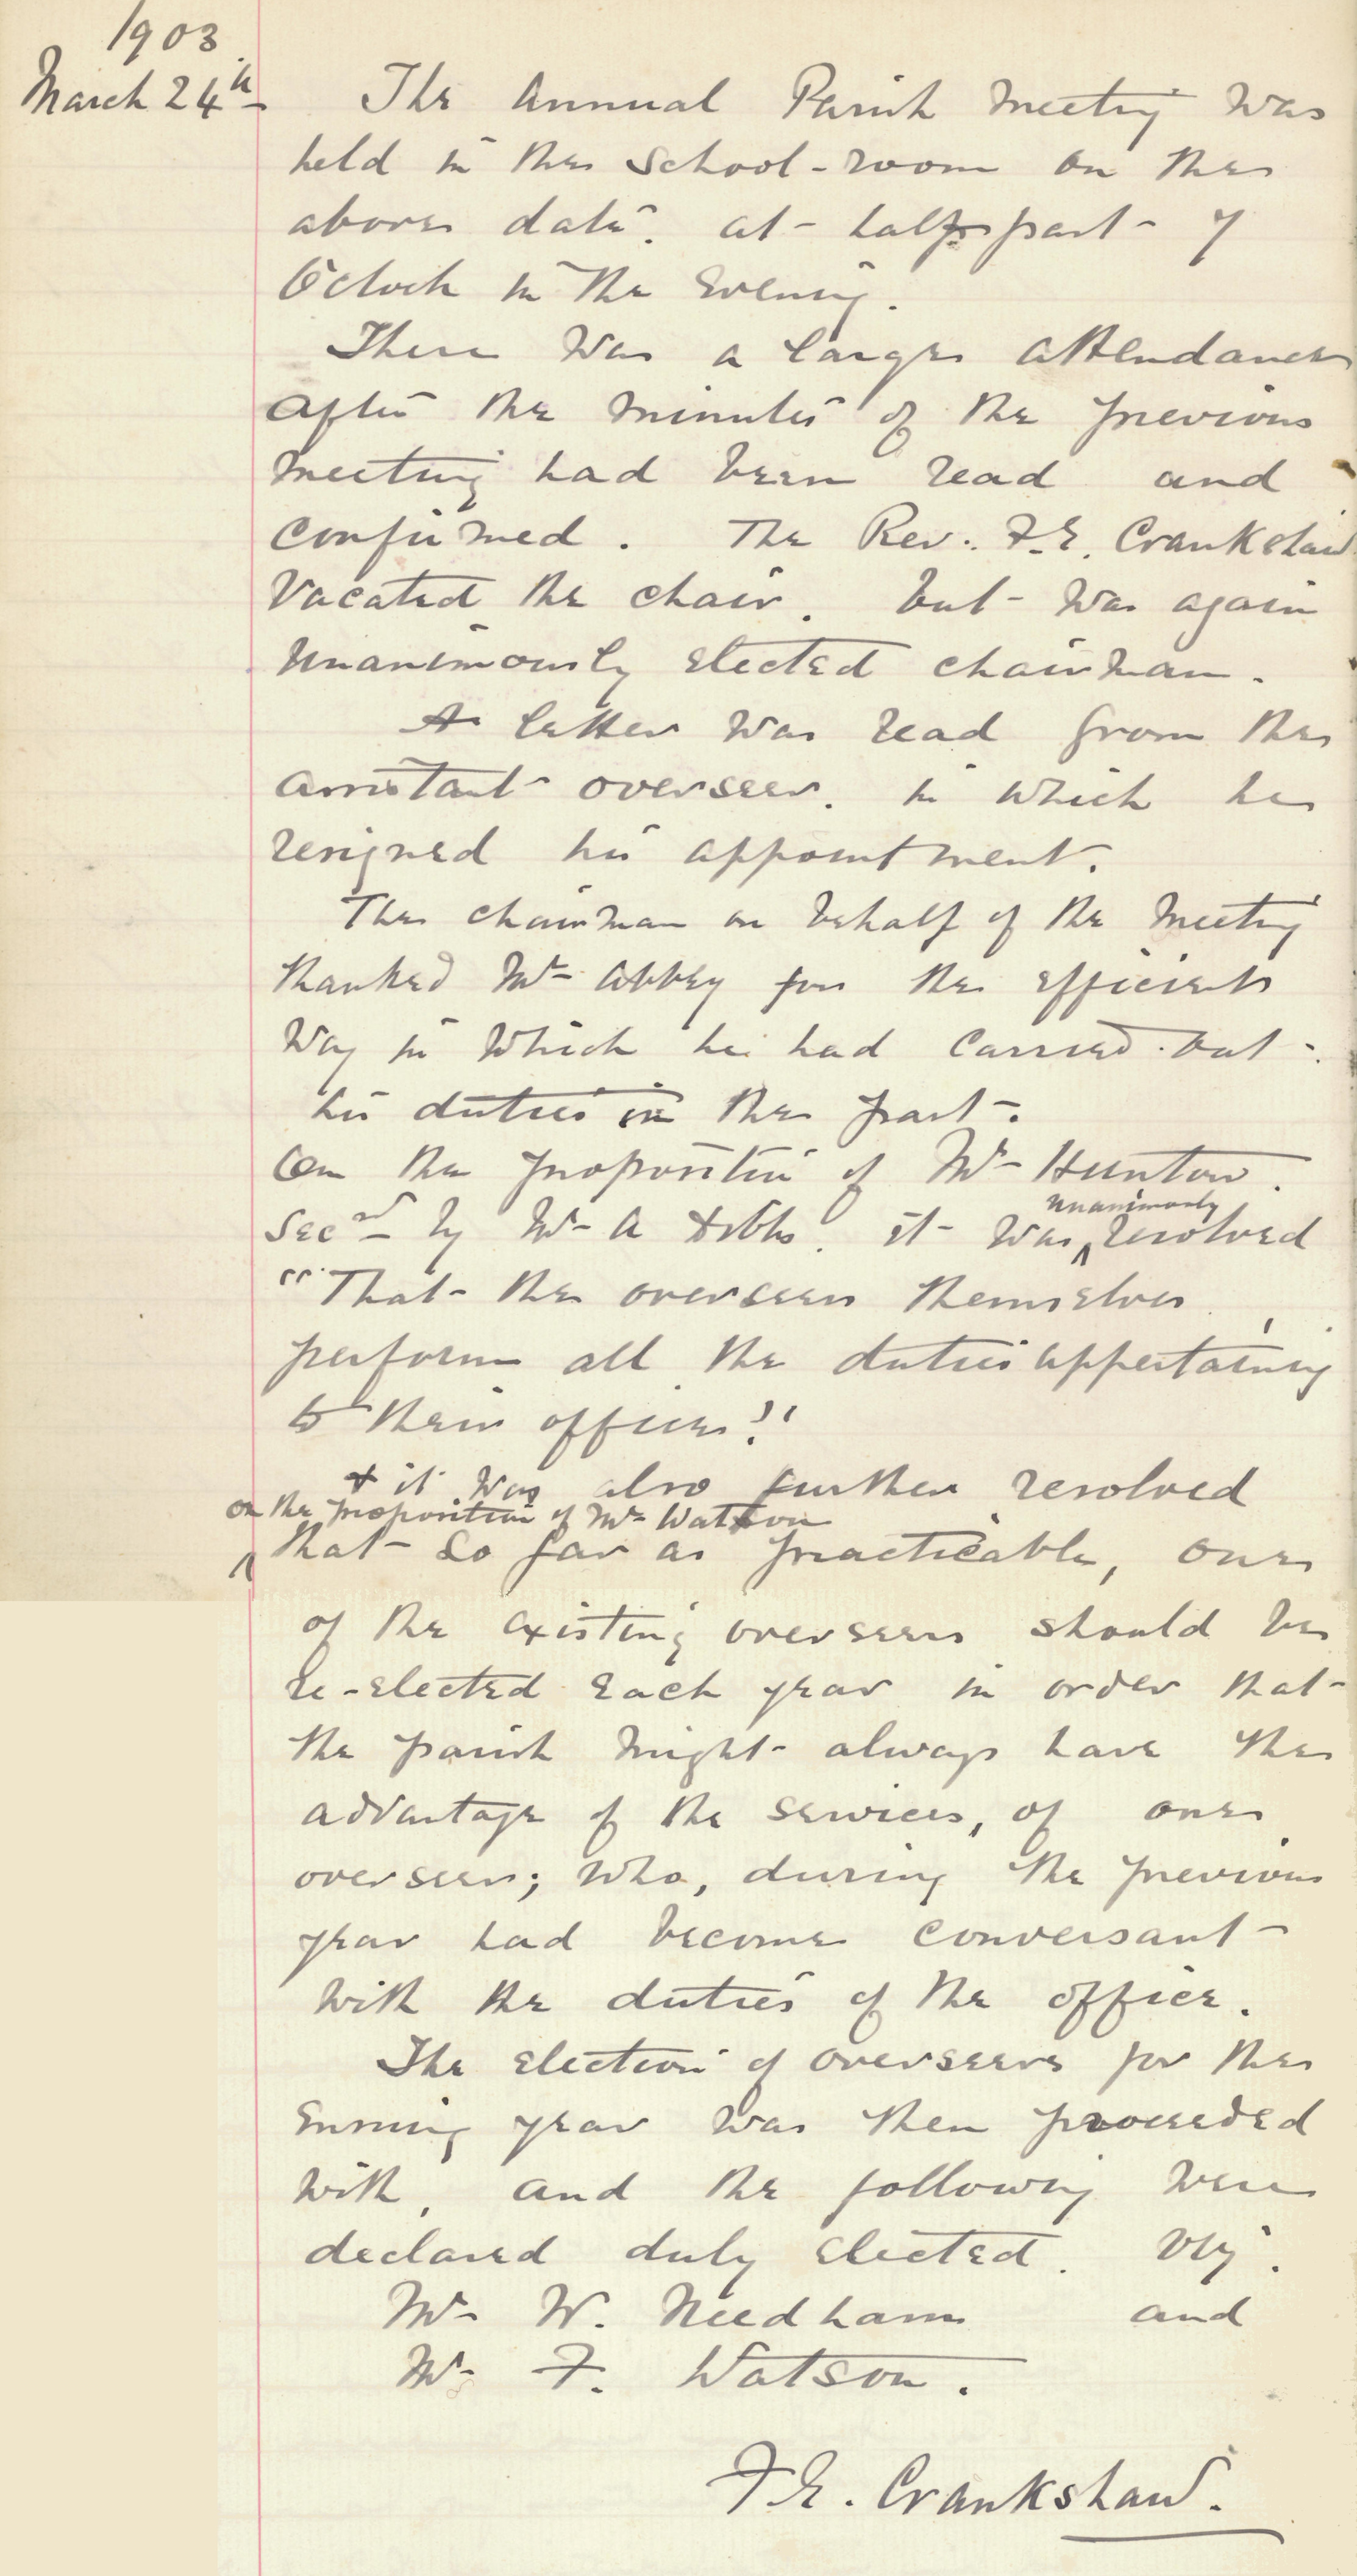 1903
March 24th
The Annual Parish Meeting was
held in the School-room on the
above date. at half past 7
O'clock in the Evening.
There was a large attendance
After the minutes of the previous
meeting had been read and
confirmed. The Rev: F. E. Crankshaw
Vacated the chair. but was again
unanimously elected chairman.
A letter was read from the
assistant overseer. in which he
resigned his appointment.
The chairman on behalf of the Meeting
thanked Mr Abbey for the efficient
way in which he had carried out
his duties in the past.
On the proposition of Mr Hunton.
unanimously
Secd by Mr A it was resolved
"That the overseers themselves
perform all the duties appertaining
to their offices."
& it was also further resolved
on the proposition of Mr Watson
that so far as practicable, one
of the existing overseers should be
re-elected each year in order that
the parish might always have the
advantage of the services, of one
overseer; who, during the previous
year had become conversant
with the duties of the office.
The election of overseers for the
Ensuing year was then proceeded
with, and the following were
declared duly elected. viz.
Mr W. Needham and
Mr F. Watson.
F. E. Crankshaw.